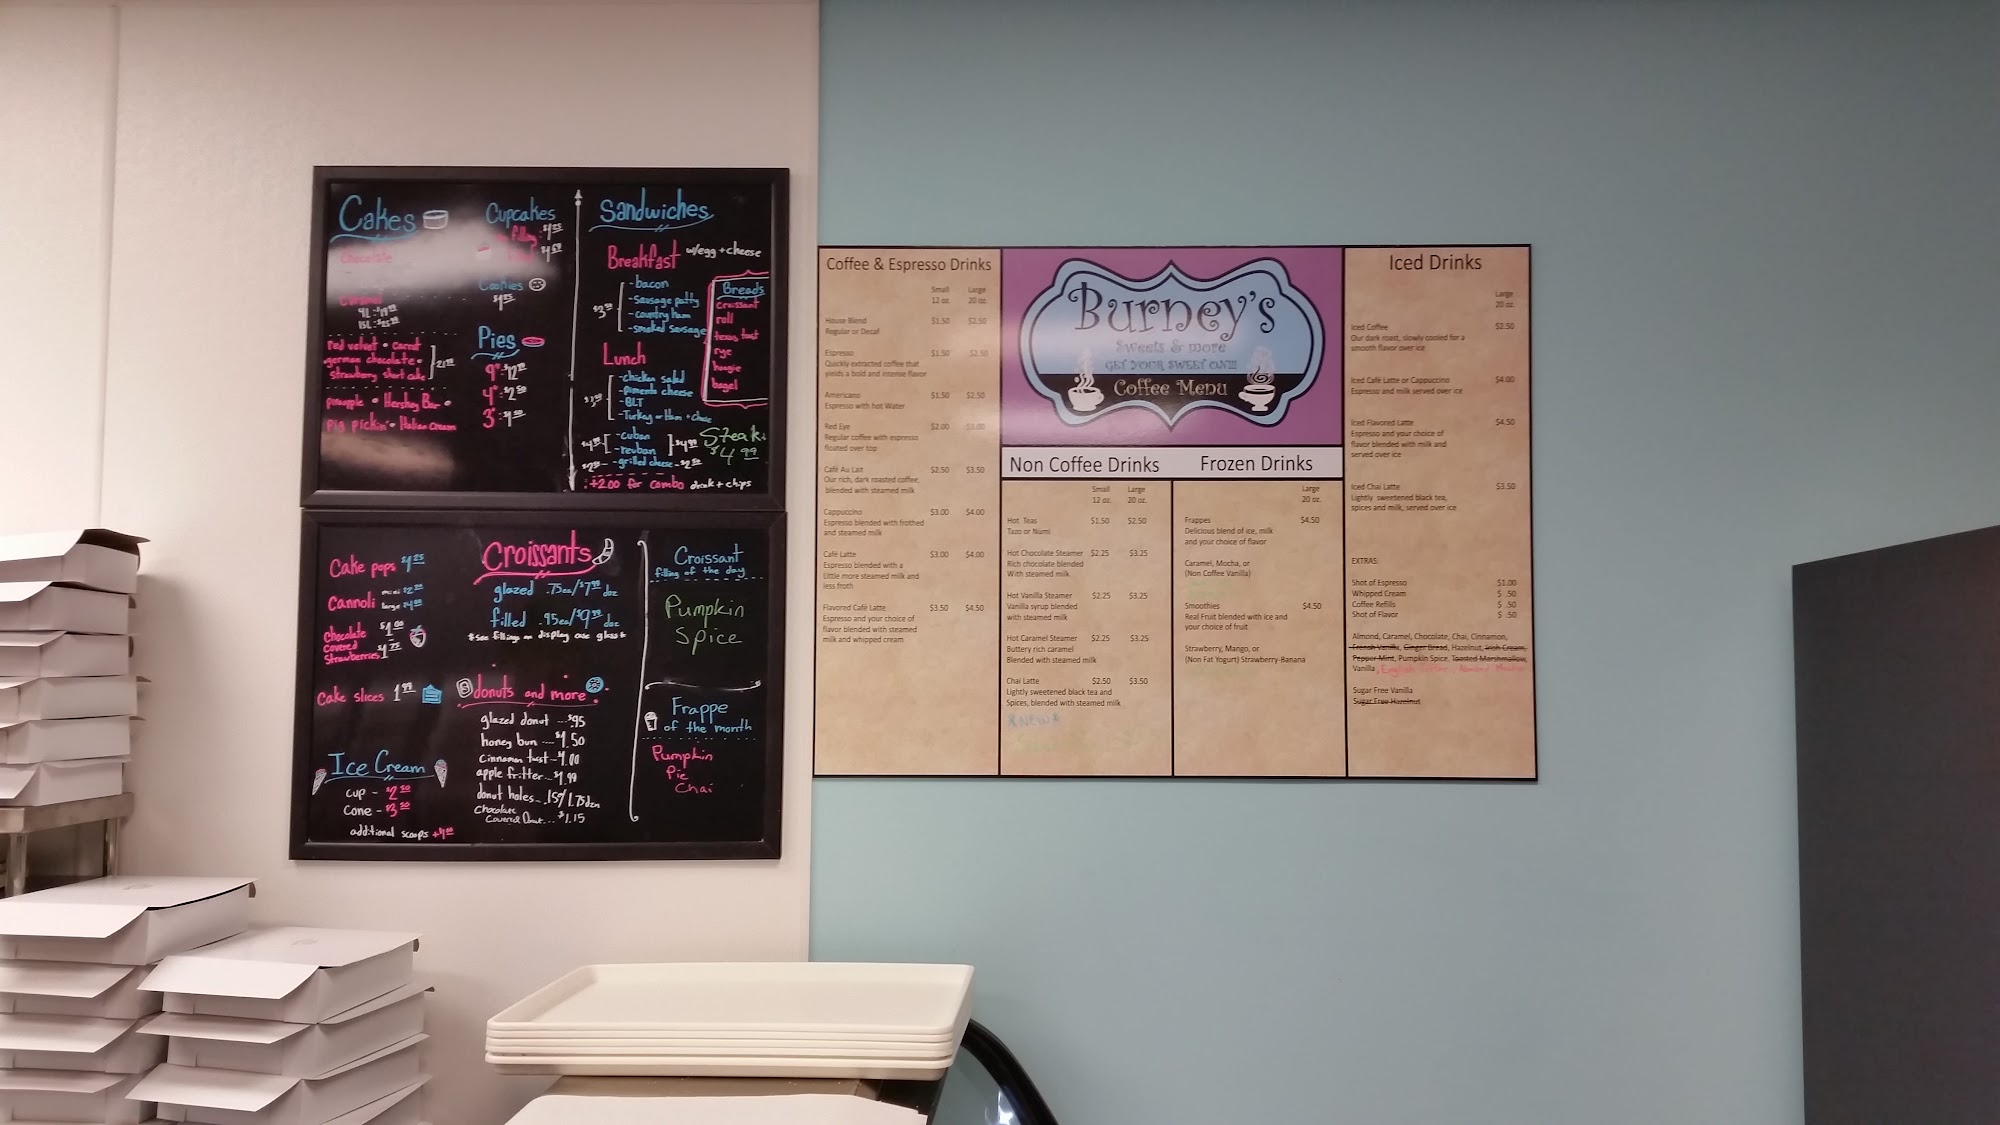 Cakes
Chocolate
Caramel
red velvet • carrot
german chocolate •
strawberry short cake
pineapple • Hershey Bar •
pig pickin' • Italian Cream
Cupcakes
filling
Cookies
Pies
9"
4" : $2.50
3"
Sandwiches
Breakfast w/egg + cheese
- bacon
- sausage patty
- country ham
- smoked sausage
Breads
croissant
roll
texas toast
rye
hoagie
bagel
Lunch
- chicken salad
- pimento cheese
- BLT
- Turkey or Ham + Cheese
- cuban
- reuban
- grilled cheese - $2.50
Steak
$4.99
+2.00 for combo drink + chips
Cake pops $1.25
Cannoli
mini $2.00
large
Chocolate
Covered
Strawberries
$1.00
Cake slices 1.99
Ice Cream
Cup - $2.50
Cone - $3.50
additional scoops
Croissants
glazed .75ea/$7.99 doz
filled .95ea/$9.99 doz
*see fillings on display case glass*
donuts and more
glazed donut ... $.95
honey bun .... $1.50
cinnamon twist - $1.00
apple fritter - $1.99
donut holes - .15¢/1.75dzn
Chocolate
Covered Donut... $1.15
Croissant
filling of the day
Pumpkin
Spice
Frappe
of the month
Pumpkin
Pie
Chai
Coffee & Espresso Drinks
Small Large
12 oz. 20 oz.
House Blend $1.50 $2.50
Regular or Decaf
Espresso $1.50 $2.50
Quickly extracted coffee that
yields a bold and intense flavor
Americano $1.50 $2.50
Espresso with hot Water
Red Eye $2.00 $3.00
Regular coffee with espresso
floated over top
Café Au Lait $2.50 $3.50
Our rich, dark roasted coffee,
blended with steamed milk
Cappuccino $3.00 $4.00
Espresso blended with frothed
and steamed milk
Café Latte $3.00 $4.00
Espresso blended with a
Little more steamed milk and
less froth
Flavored Café Latte $3.50 $4.50
Espresso and your choice of
flavor blended with steamed
milk and whipped cream
Burney's
Sweets & more
GET YOUR SWEET ON!!!
Coffee Menu
Non Coffee Drinks
Small Large
12 oz. 20 oz.
Hot Teas $1.50 $2.50
Tazo or Numi
Hot Chocolate Steamer $2.25 $3.25
Rich chocolate blended
With steamed milk
Hot Vanilla Steamer $2.25 $3.25
Vanilla syrup blended
with steamed milk
Hot Caramel Steamer $2.25 $3.25
Buttery rich caramel
Blended with steamed milk
Chai Latte $2.50 $3.50
Lightly sweetened black tea and
Spices, blended with steamed milk
*NEW*
Frozen Drinks
Large
20 oz.
Frappes $4.50
Delicious blend of ice, milk
and your choice of flavor
Caramel, Mocha, or
(Non Coffee Vanilla)
Smoothies $4.50
Real Fruit blended with ice and
your choice of fruit
Strawberry, Mango, or
(Non Fat Yogurt) Strawberry-Banana
Iced Drinks
Large
20 oz.
Iced Coffee $2.50
Our dark roast, slowly cooled for a
smooth flavor over ice
Iced Café Latte or Cappuccino $4.00
Espresso and milk served over ice
Iced Flavored Latte $4.50
Espresso and your choice of
flavor blended with milk and
served over ice
Iced Chai Latte $3.50
Lightly sweetened black tea,
spices and milk, served over ice
EXTRAS:
Shot of Espresso $1.00
Whipped Cream $ .50
Coffee Refills $ .50
Shot of Flavor $ .50
Almond, Caramel, Chocolate, Chai, Cinnamon,
French Vanilla, Ginger Bread, Hazelnut, Irish Cream,
Pepper Mint, Pumpkin Spice, Toasted Marshmallow,
Vanilla, English Toffee, Almond
Sugar Free Vanilla
Sugar Free Hazelnut